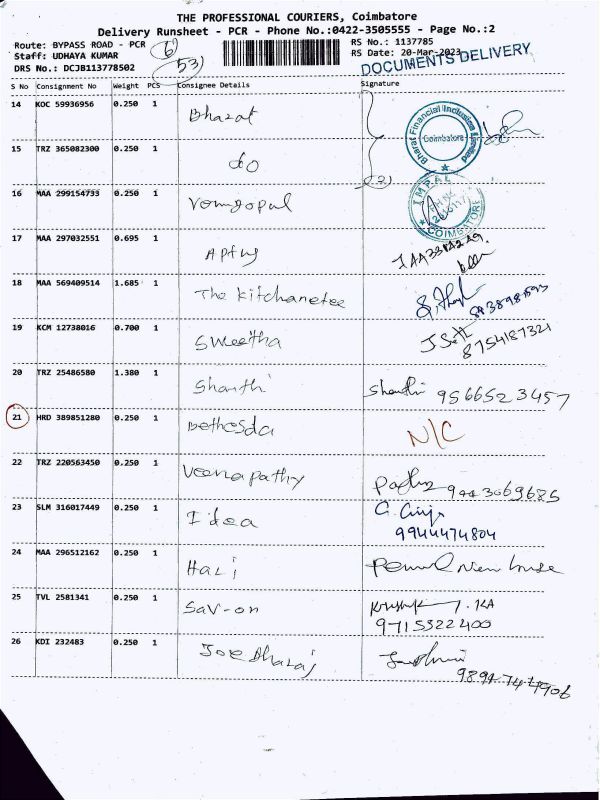 THE PROFESSIONAL COURIERS, Coimbatore
Delivery Runsheet - PCR - Phone No.:0422-3505555 - Page No.:2
Route: BYPASS ROAD - PCR 6) RS No.: 1137785
Staff: UDHAYA KUMAR 53) RS Date: 20-Mar-2023
DRS No.: DCJB113778502 DOCUMENTS DELIVERY
S No Consignment No Weight PCS Consignee Details Signature
14 KOC 59936956 0.250 1 Bharat
Bharat Financial Inclusion Limited Coimbatore
15 TRZ 365082300 0.250 1 do (2)
16 MAA 299154733 0.250 1 Venugopal
IMPAL COIMBATORE
17 MAA 297032551 0.695 1
18 MAA 569409514 1.685 1 The Kitchanetee
19 KCM 12738016 0.700 1 Swetha
8754187321
20 TRZ 25486580 1.380 1 Shanthi Shanthi 9566523457
21 HRD 389851280 0.250 1 Bethesda N/C
22 TRZ 220563450 0.250 1 Veenapathy 9443069685
23 SLM 316017449 0.250 1 Idea
9944474804
24 MAA 296512162 0.250 1 Hari
25 TVL 2581341 0.250 1 Sav-on
9715322400
26 KDI 232483 0.250 1 Joe Bharaj